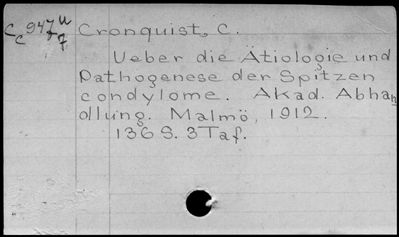 Cc947u7 Cronquist, C.
Ueber die Ätiologie und
Pathogenese der Spitzen
condylome. Akad. Abhan
dlung. Malmö, 1912.
136 S. 3 Taf.